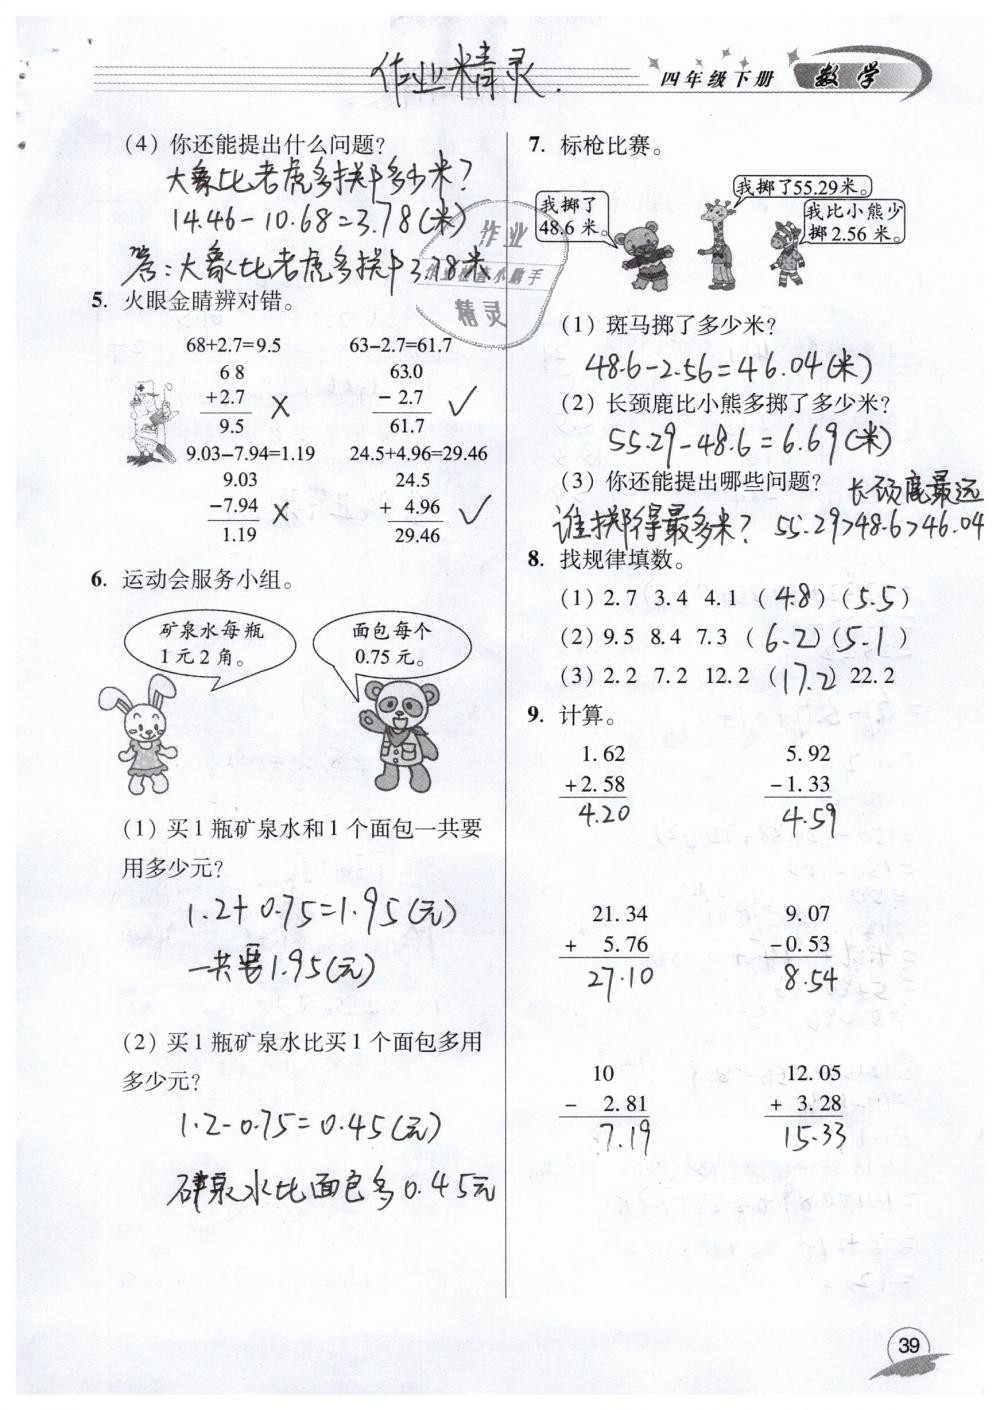 作业精灵.
四年级下册 数学
(4) 你还能提出什么问题?
大象比老虎多掷多少米?
14.46-10.68=3.78(米)
答:大象比老虎多掷3.78米
5. 火眼金睛辨对错。
68+2.7=9.5 63-2.7=61.7
68 63.0
+2.7 × - 2.7 ✓
9.5 61.7
9.03-7.94=1.19 24.5+4.96=29.46
9.03 24.5
-7.94 × + 4.96 ✓
1.19 29.46
6. 运动会服务小组。
矿泉水每瓶
1元2角。
面包每个
0.75元。
(1) 买1瓶矿泉水和1个面包一共要
用多少元?
1.2+0.75=1.95(元)
一共要1.95(元)
(2) 买1瓶矿泉水比买1个面包多用
多少元?
1.2-0.75=0.45(元)
矿泉水比面包多0.45元
作业
精灵
7. 标枪比赛。
我掷了
48.6米。
我掷了55.29米。
我比小熊少
掷2.56米。
(1) 斑马掷了多少米?
48.6-2.56=46.04(米)
(2) 长颈鹿比小熊多掷了多少米?
55.29-48.6=6.69(米)
(3) 你还能提出哪些问题? 长颈鹿最远
谁掷得最多米? 55.29>48.6>46.04
8. 找规律填数。
(1) 2.7 3.4 4.1 (4.8) (5.5)
(2) 9.5 8.4 7.3 (6.2) (5.1)
(3) 2.2 7.2 12.2 (17.2) 22.2
9. 计算。
1.62 5.92
+2.58 -1.33
4.20 4.59
21.34 9.07
+ 5.76 -0.53
27.10 8.54
10 12.05
- 2.81 + 3.28
7.19 15.33
39